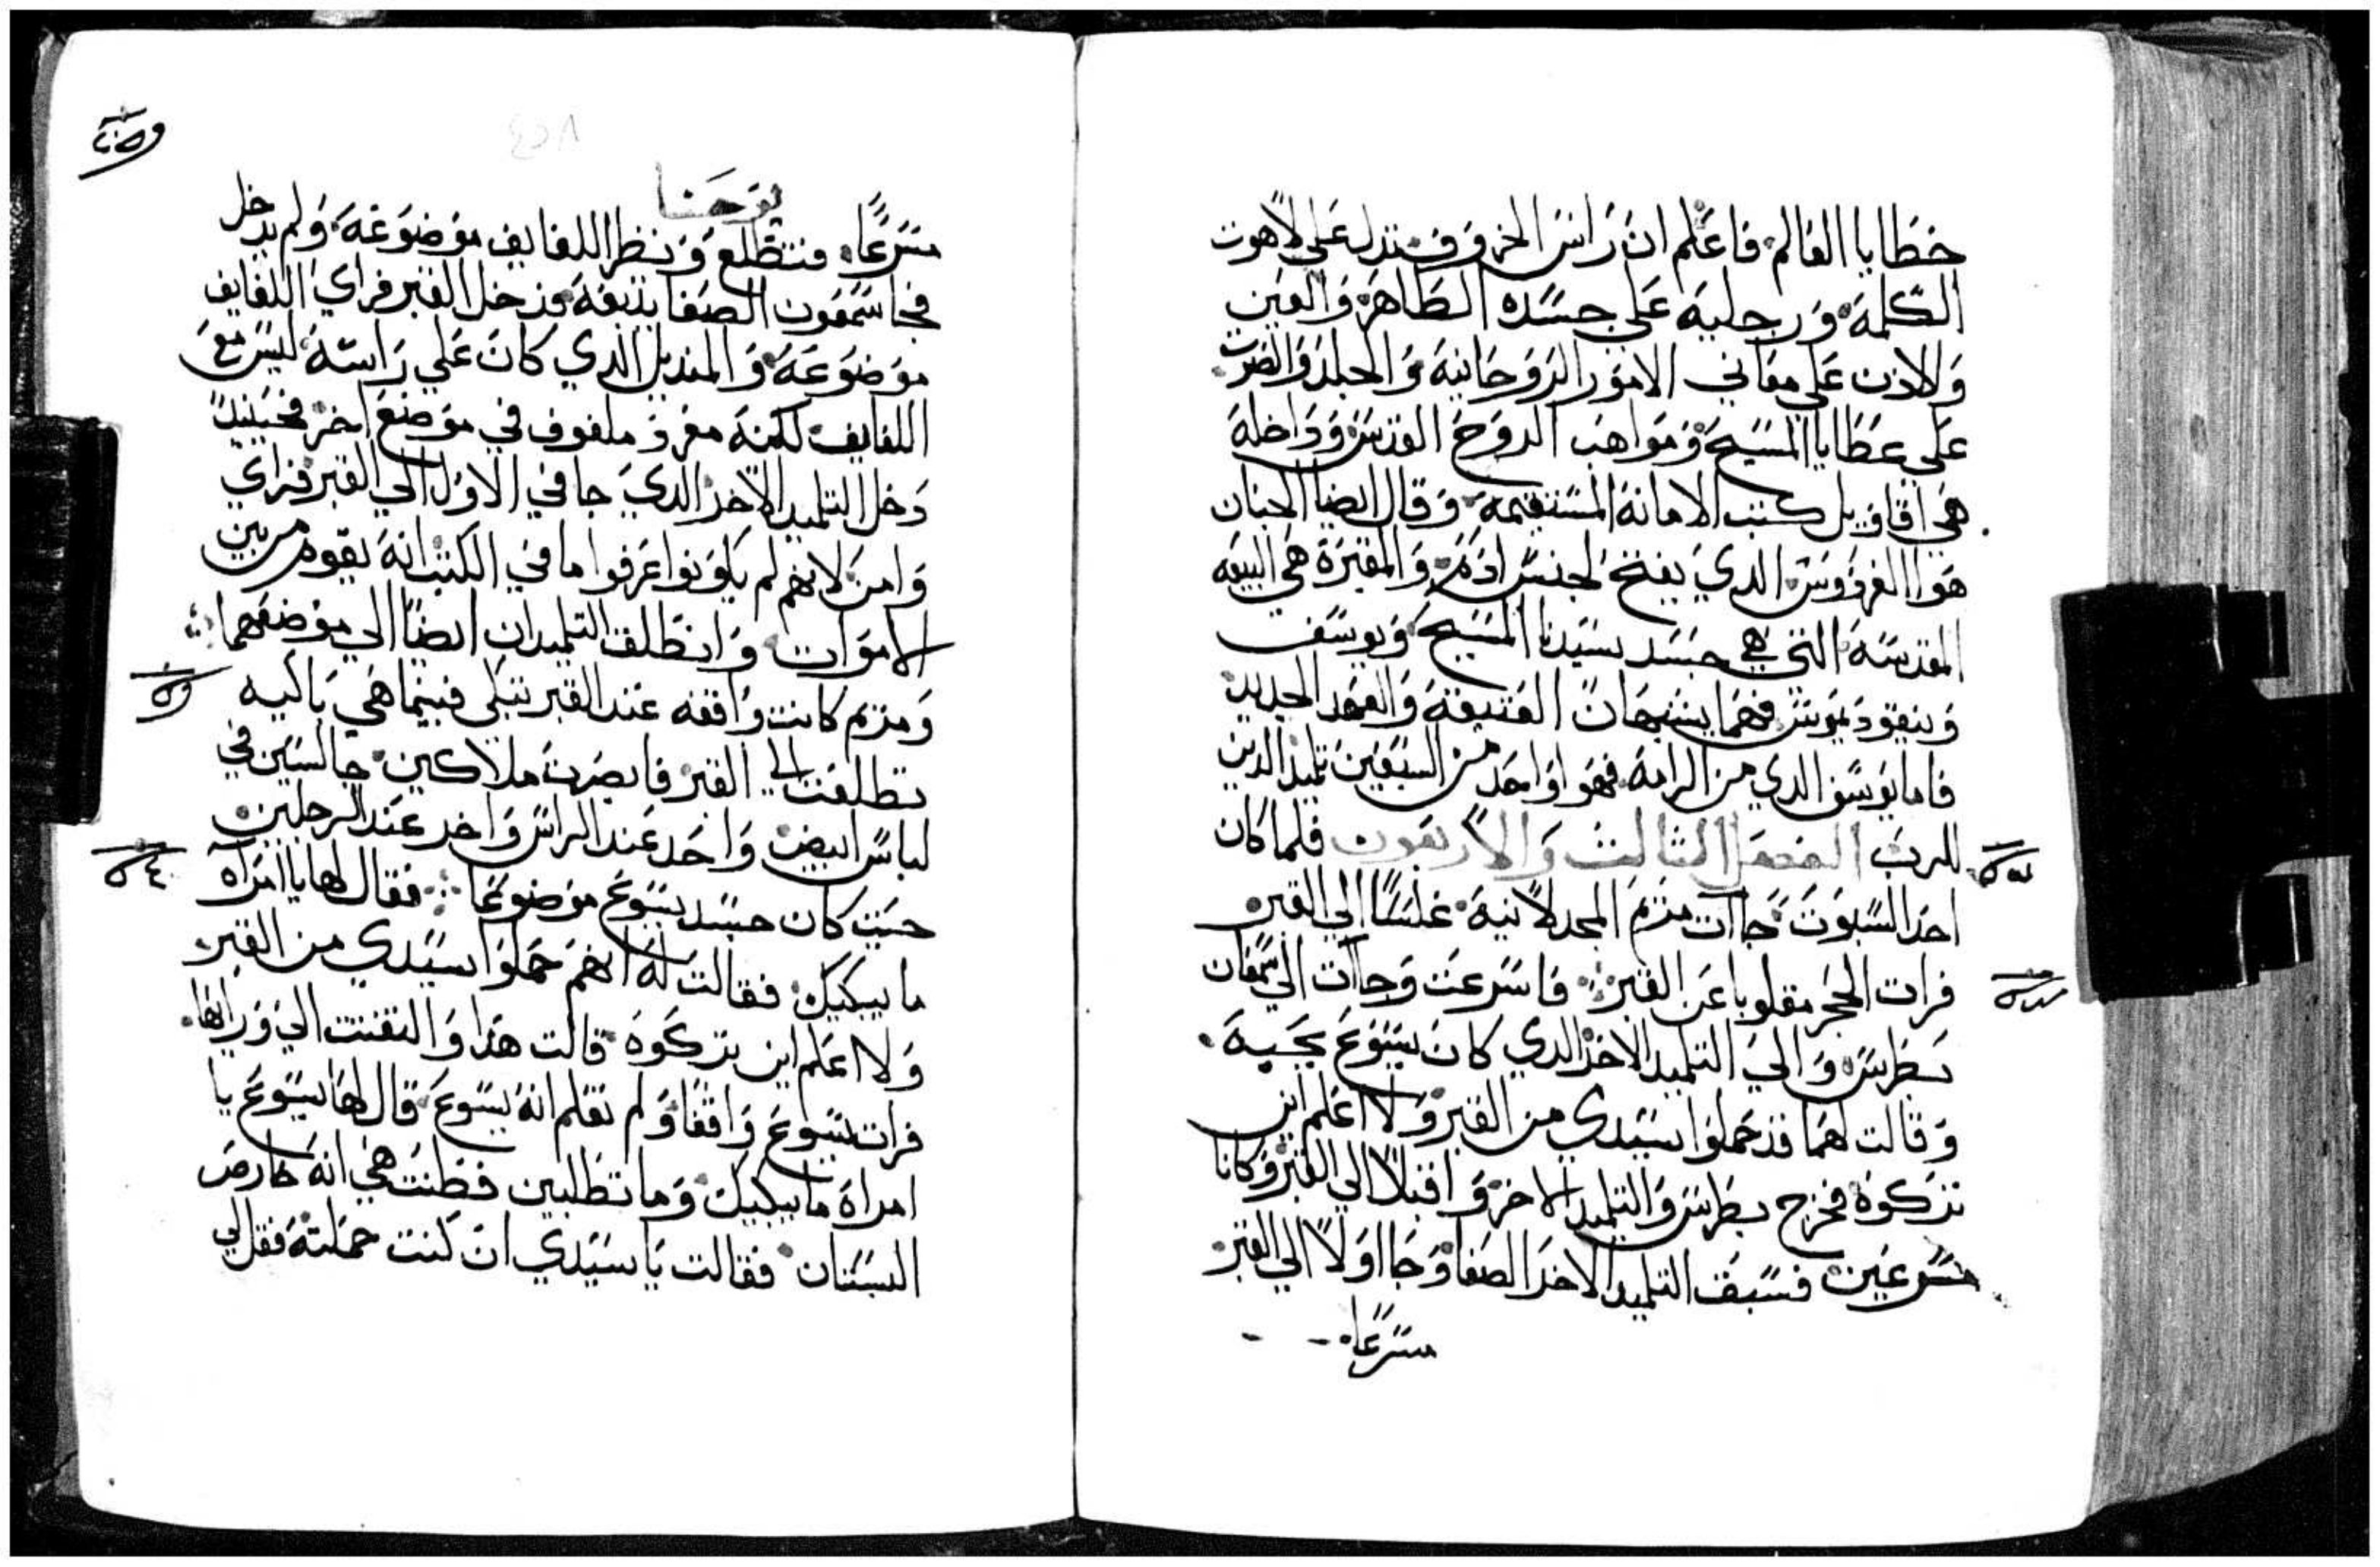 خطايا العالم فاعلم ان راس الخروف تدل على لاهوت
الكلمة ورجليه على جسده الطاهر والعين
والاذن على معاني الامور الروحانية والجلد والضرب
على عطايا المسيح ومواهب الروح القدس وداخله
هي اقاويل كتب الامانة المستقيمة وقال ايضا الجنان
هوا الفردوس الدي يفتح لجنس ادم والمقبرة هي البيعه
المقدسة التي هي جسد سيدنا المسيح ويوسف
ونيقوديموس فهما يشبهان العتيقة والعهد الجديد
فاما يوسف الدي من الرامة فهو اواحد من السبعين تلميد الدين
للرب الفصل التالت والاربعون فلما كان
احد السبوت جاآت مريم المجدلانية غلسًا الي القبر
فرات الحجر مقلوبا عن القبر فاسرعت وجاآت الي سمعان
بطرس والي التلميد الاخر الدي كان يسوع يحبه
وقالت لهما قد حملوا سيدي من القبر ولا اعلم اين
تركوه فخرج بطرس والتلميد الاخر واقبلا الي القبر وكانا
مسرعين فسبق التلميد الاخر الصفا وجا اولًا الي القبر
مسرعًا
٤٥٨
يوحنا
مسرعًا فتطلع ونظر اللفايف موضوعة ولم يدخل
فجا سمعون الصفا يتبعه ودخل القبر فراي اللفايف
موضوعة والمنديل الدي كان علي راسه ليس مع
اللفايف لكنه مفرد ملفوف في موضع اخر فحينيدً
دخل التلميد الاخر الدي جا في الاول الي القبر فراي
وامن لانهم لم يكونوا عرفوا ما في الكتب انه يقوم من بين
الاموات وانطلق التلميدان ايضًا الي موضعهما
ومريم كانت واقفه عند القبر تبكي فبينما هي باكيه
تطلعت الي القبر فابصرت ملاكين جالسين في
لباس ابيض واحد عند الراس واخر عند الرجلين
حيت كان جسد يسوع موضوعًا فقال لها يا امراه
ما يبكيك فقالت له انهم حملوا سيدي من القبر
ولا اعلم اين تركوه قالت هدا والتفتت الي ورايها
فرات يسوع واقفًا ولم تعلم انه يسوع قال لها يسوع يا
امراة ما يبكيك وما تطلبين فظنت هي انه حارص
البستان فقالت يا سيدي ان كنت حملته فقل لي